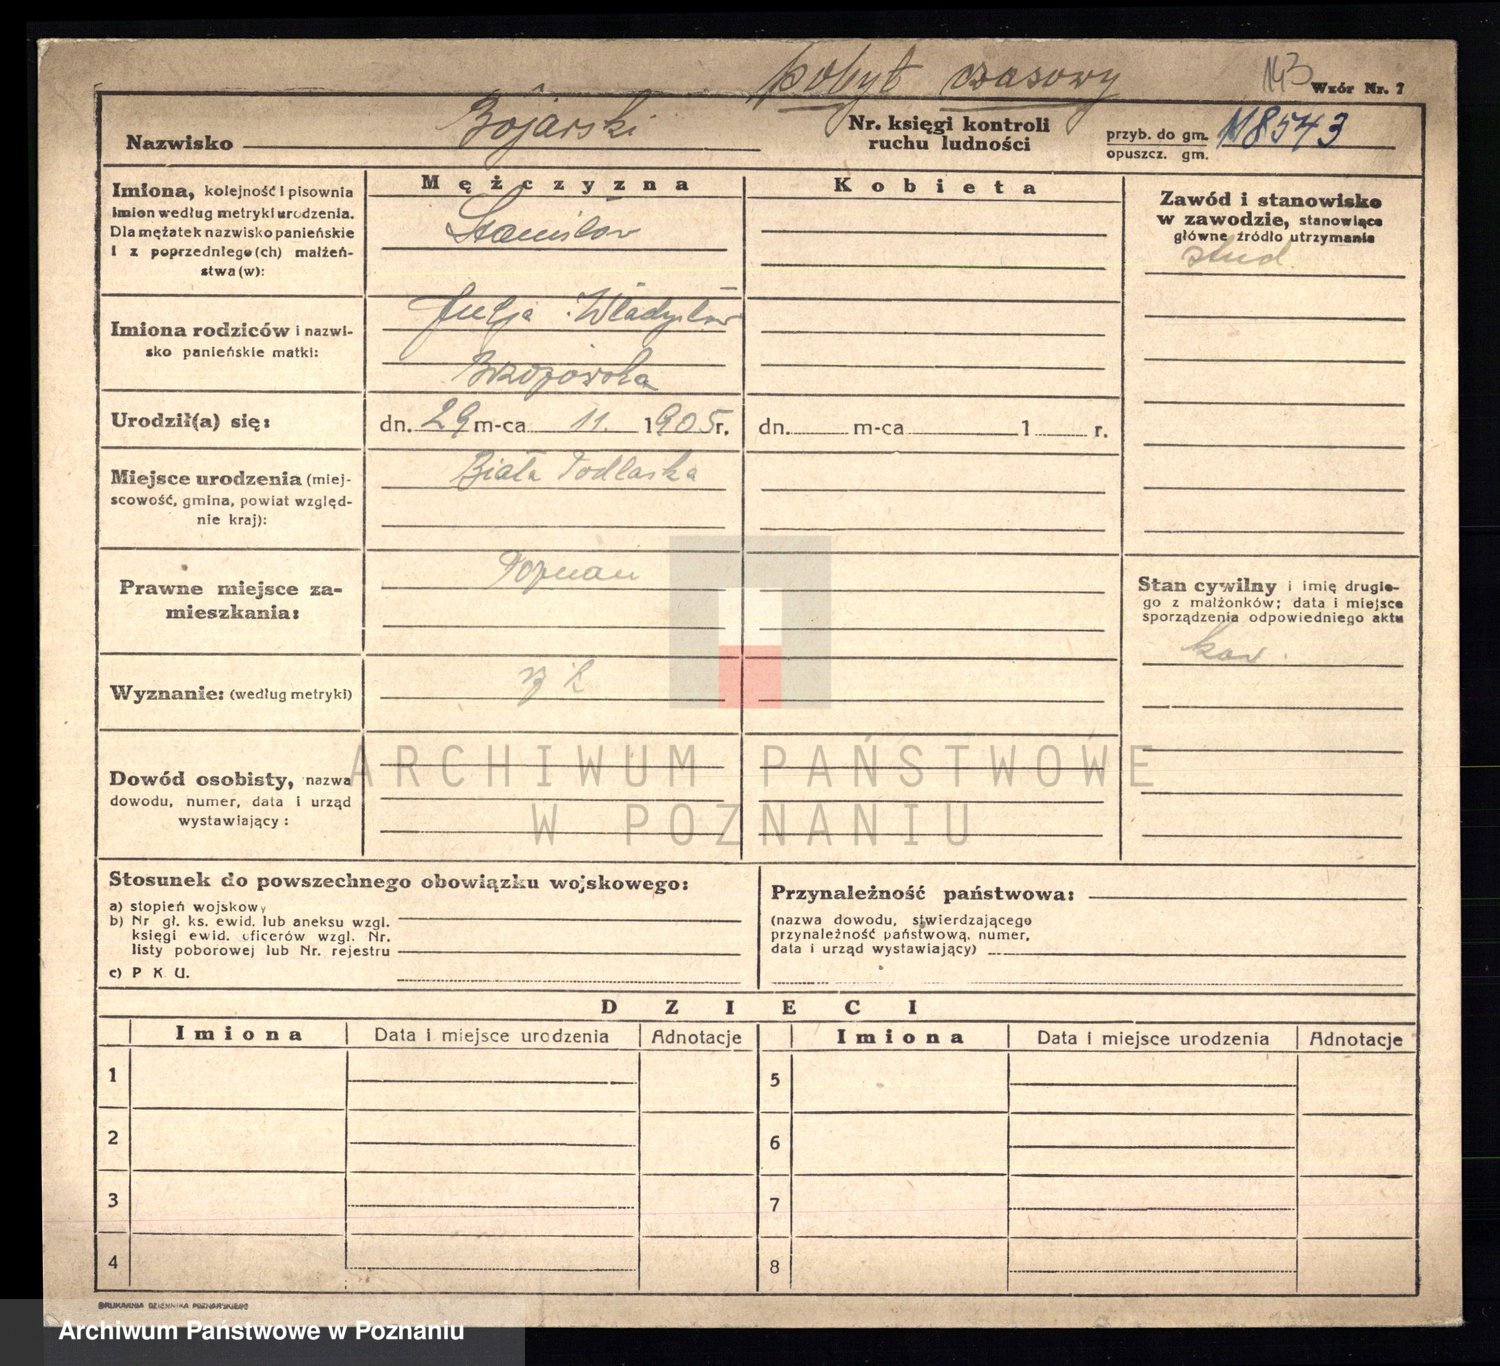 pobyt czasowy
143 Wzór Nr. 7
Nazwisko Bojarski
Nr. księgi kontroli
ruchu ludności
przyb. do gm. M8543
opuszcz. gm.
Imiona, kolejność i pisownia
imion według metryki urodzenia.
Dla mężatek nazwisko panieńskie
i z poprzedniego(ch) małżeń-
stwa(w):
Mężczyzna
Stanisław
Kobieta
Zawód i stanowisko
w zawodzie, stanowiące
główne źródło utrzymania
stud.
Imiona rodziców i nazwi-
sko panieńskie matki:
Julja Władysław
Brzozowska
Urodził(a) się:
dn. 29 m-ca 11. 1905 r.
dn. m-ca 1 r.
Miejsce urodzenia (miej-
scowość, gmina, powiat względ-
nie kraj):
Biała Podlaska
Prawne miejsce za-
mieszkania:
Poznań
Stan cywilny i imię drugie-
go z małżonków; data i miejsce
sporządzenia odpowiedniego aktu
kaw.
Wyznanie: (według metryki)
rz k
Dowód osobisty, nazwa
dowodu, numer, data i urząd
wystawiający:
ARCHIWUM PAŃSTWOWE
W POZNANIU
Stosunek do powszechnego obowiązku wojskowego:
a) stopień wojskowy
b) Nr gł. ks. ewid. lub aneksu wzgl.
księgi ewid. oficerów wzgl. Nr.
listy poborowej lub Nr. rejestru
c) P. K. U.
Przynależność państwowa:
(nazwa dowodu, stwierdzającego
przynależność państwową, numer,
data i urząd wystawiający)
DZIECI
Imiona Data i miejsce urodzenia Adnotacje Imiona Data i miejsce urodzenia Adnotacje
1 5
2 6
3 7
4 8
DRUKARNIA DZIENNIKA POZNAŃSKIEGO
Archiwum Państwowe w Poznaniu